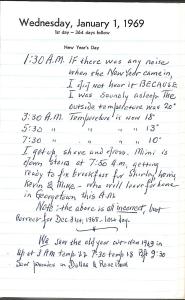 Wednesday, January 1, 1969
1st day — 364 days follow
New Year's Day
1:30 A.M. IF there was any noise
when the New Year came in,
I did not hear it BECAUSE
I was soundly asleep. The
outside temperature was 20°
3:30 A.M. Temperature is now 18°
5:30 " " " " 13°
7:30 " " " " 10°
I get up, shave and dress. Mimi is
down stairs at 7:50 a.m. getting
ready to fix breakfast for Shirley, Larry,
Kevin & Mike - who will leave for home
in Georgetown this A.M.
Note: the above is all incorrect, but
correct for Dec 31st, 1968.
We saw the old year out
up at 3 AM temp 22 7:30 temp 18 9:30
Saw parades in Dallas &